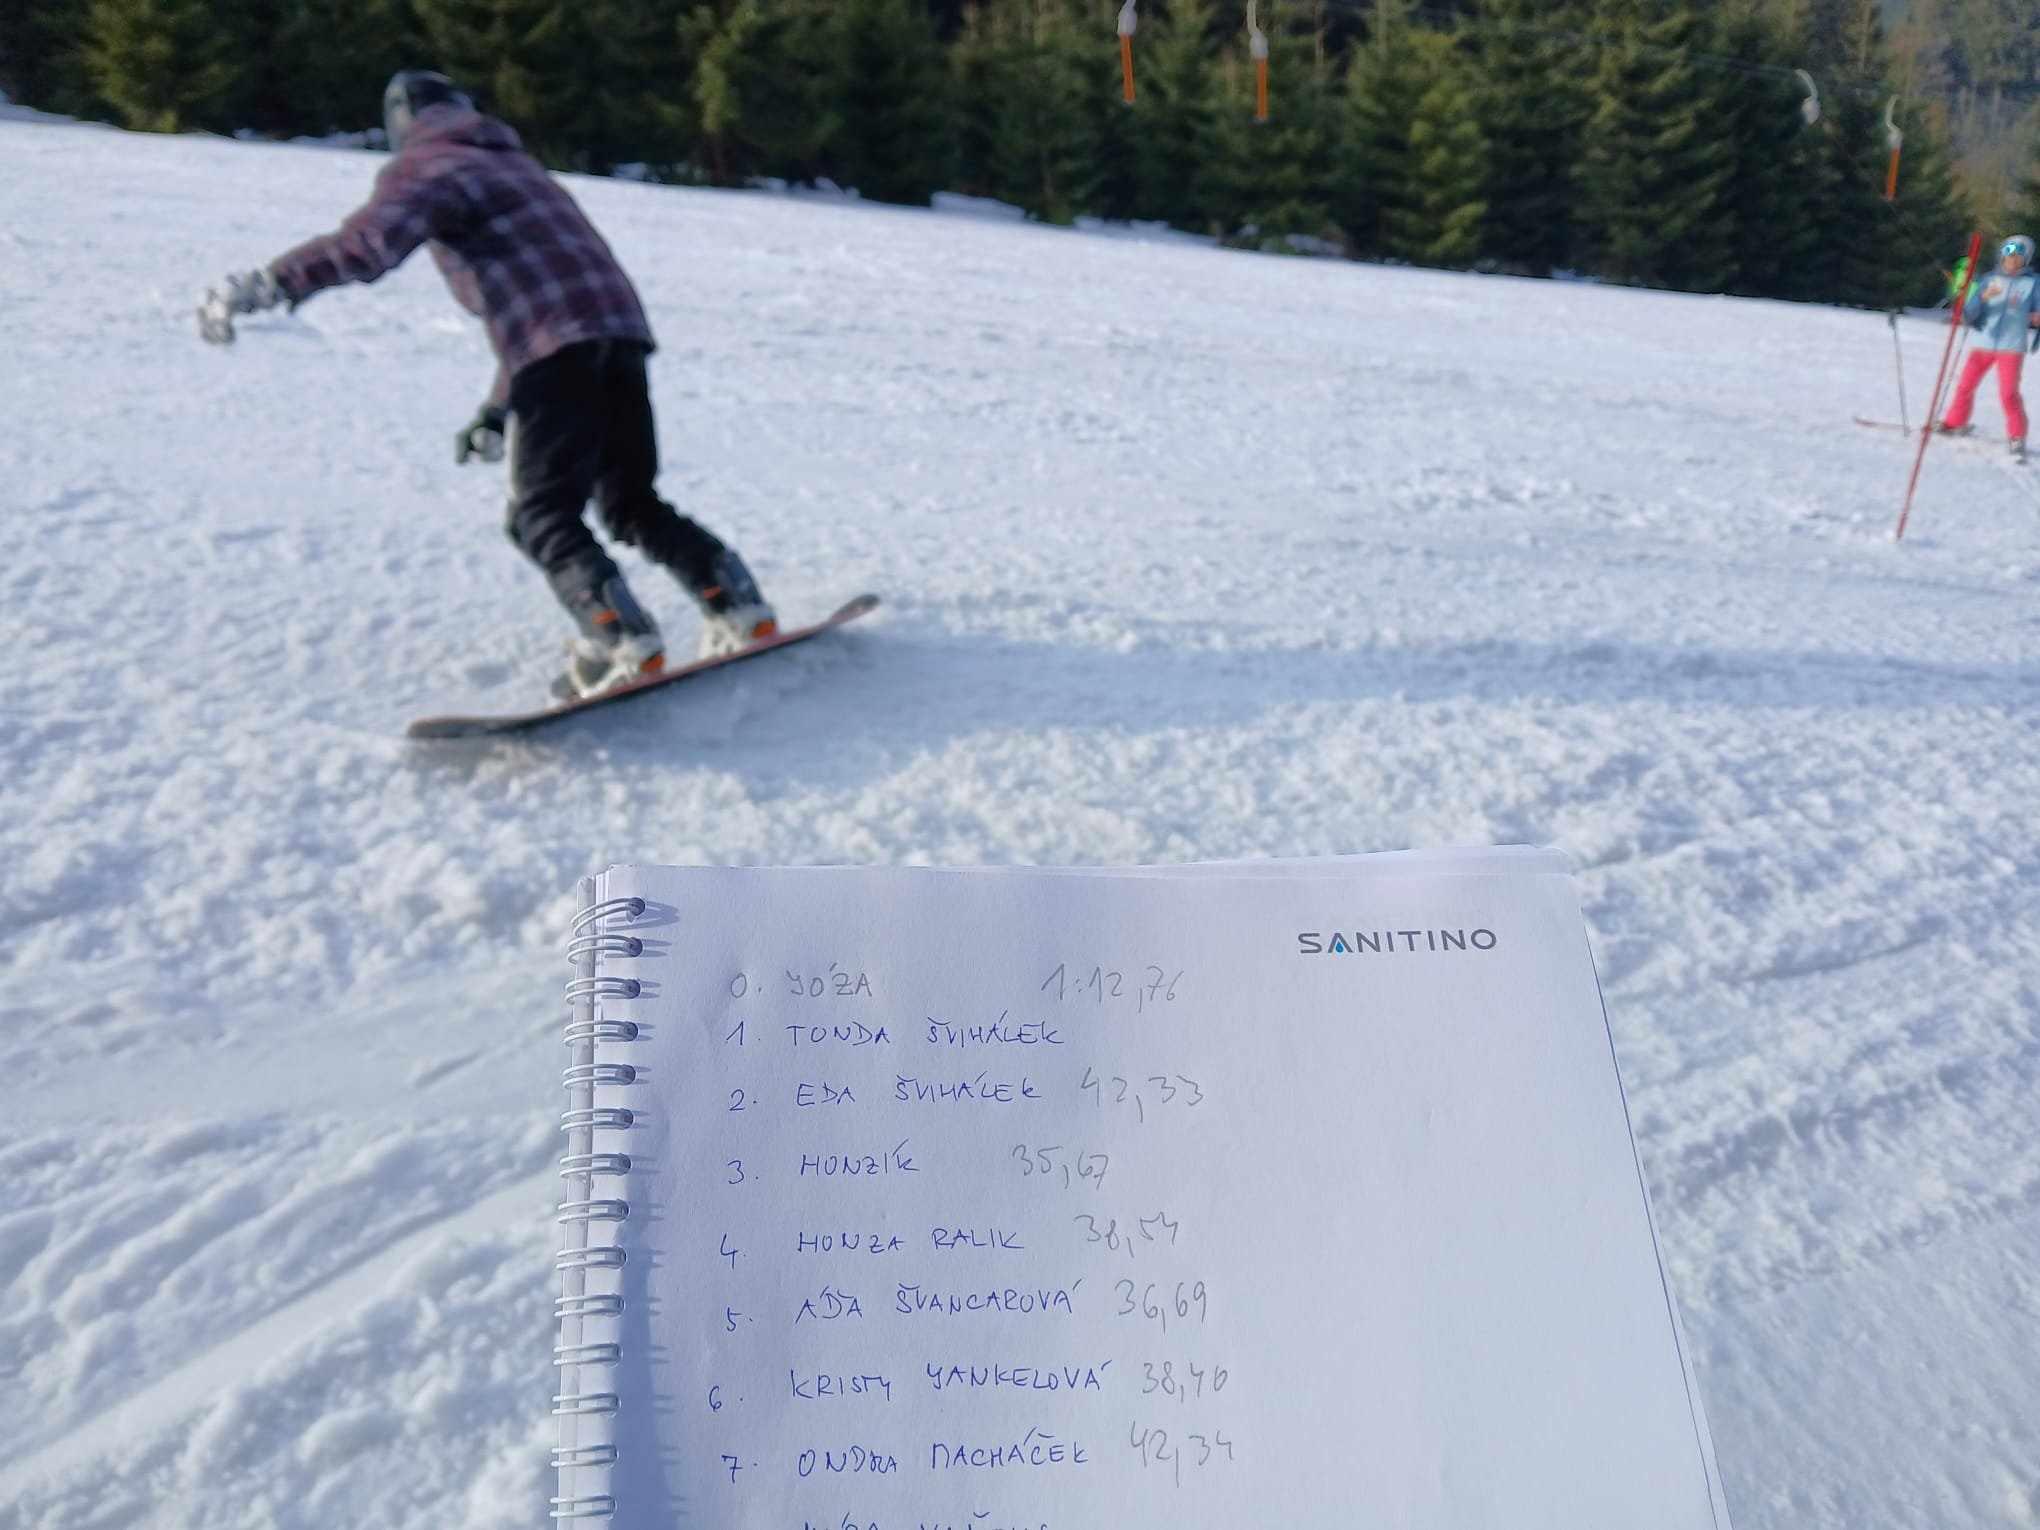 SANITINO
0. JÓŽA 1:12,76
1. TONDA ŠVIHÁLEK
2. EDA ŠVIHÁLEK 42,33
3. HONZÍK 35,67
4. HONZA RALIK 38,54
5. ÁĎA ŠVANCAROVÁ 36,69
6. KRISTY JANKELOVÁ 38,40
7. ONDRA MACHÁČEK 42,34